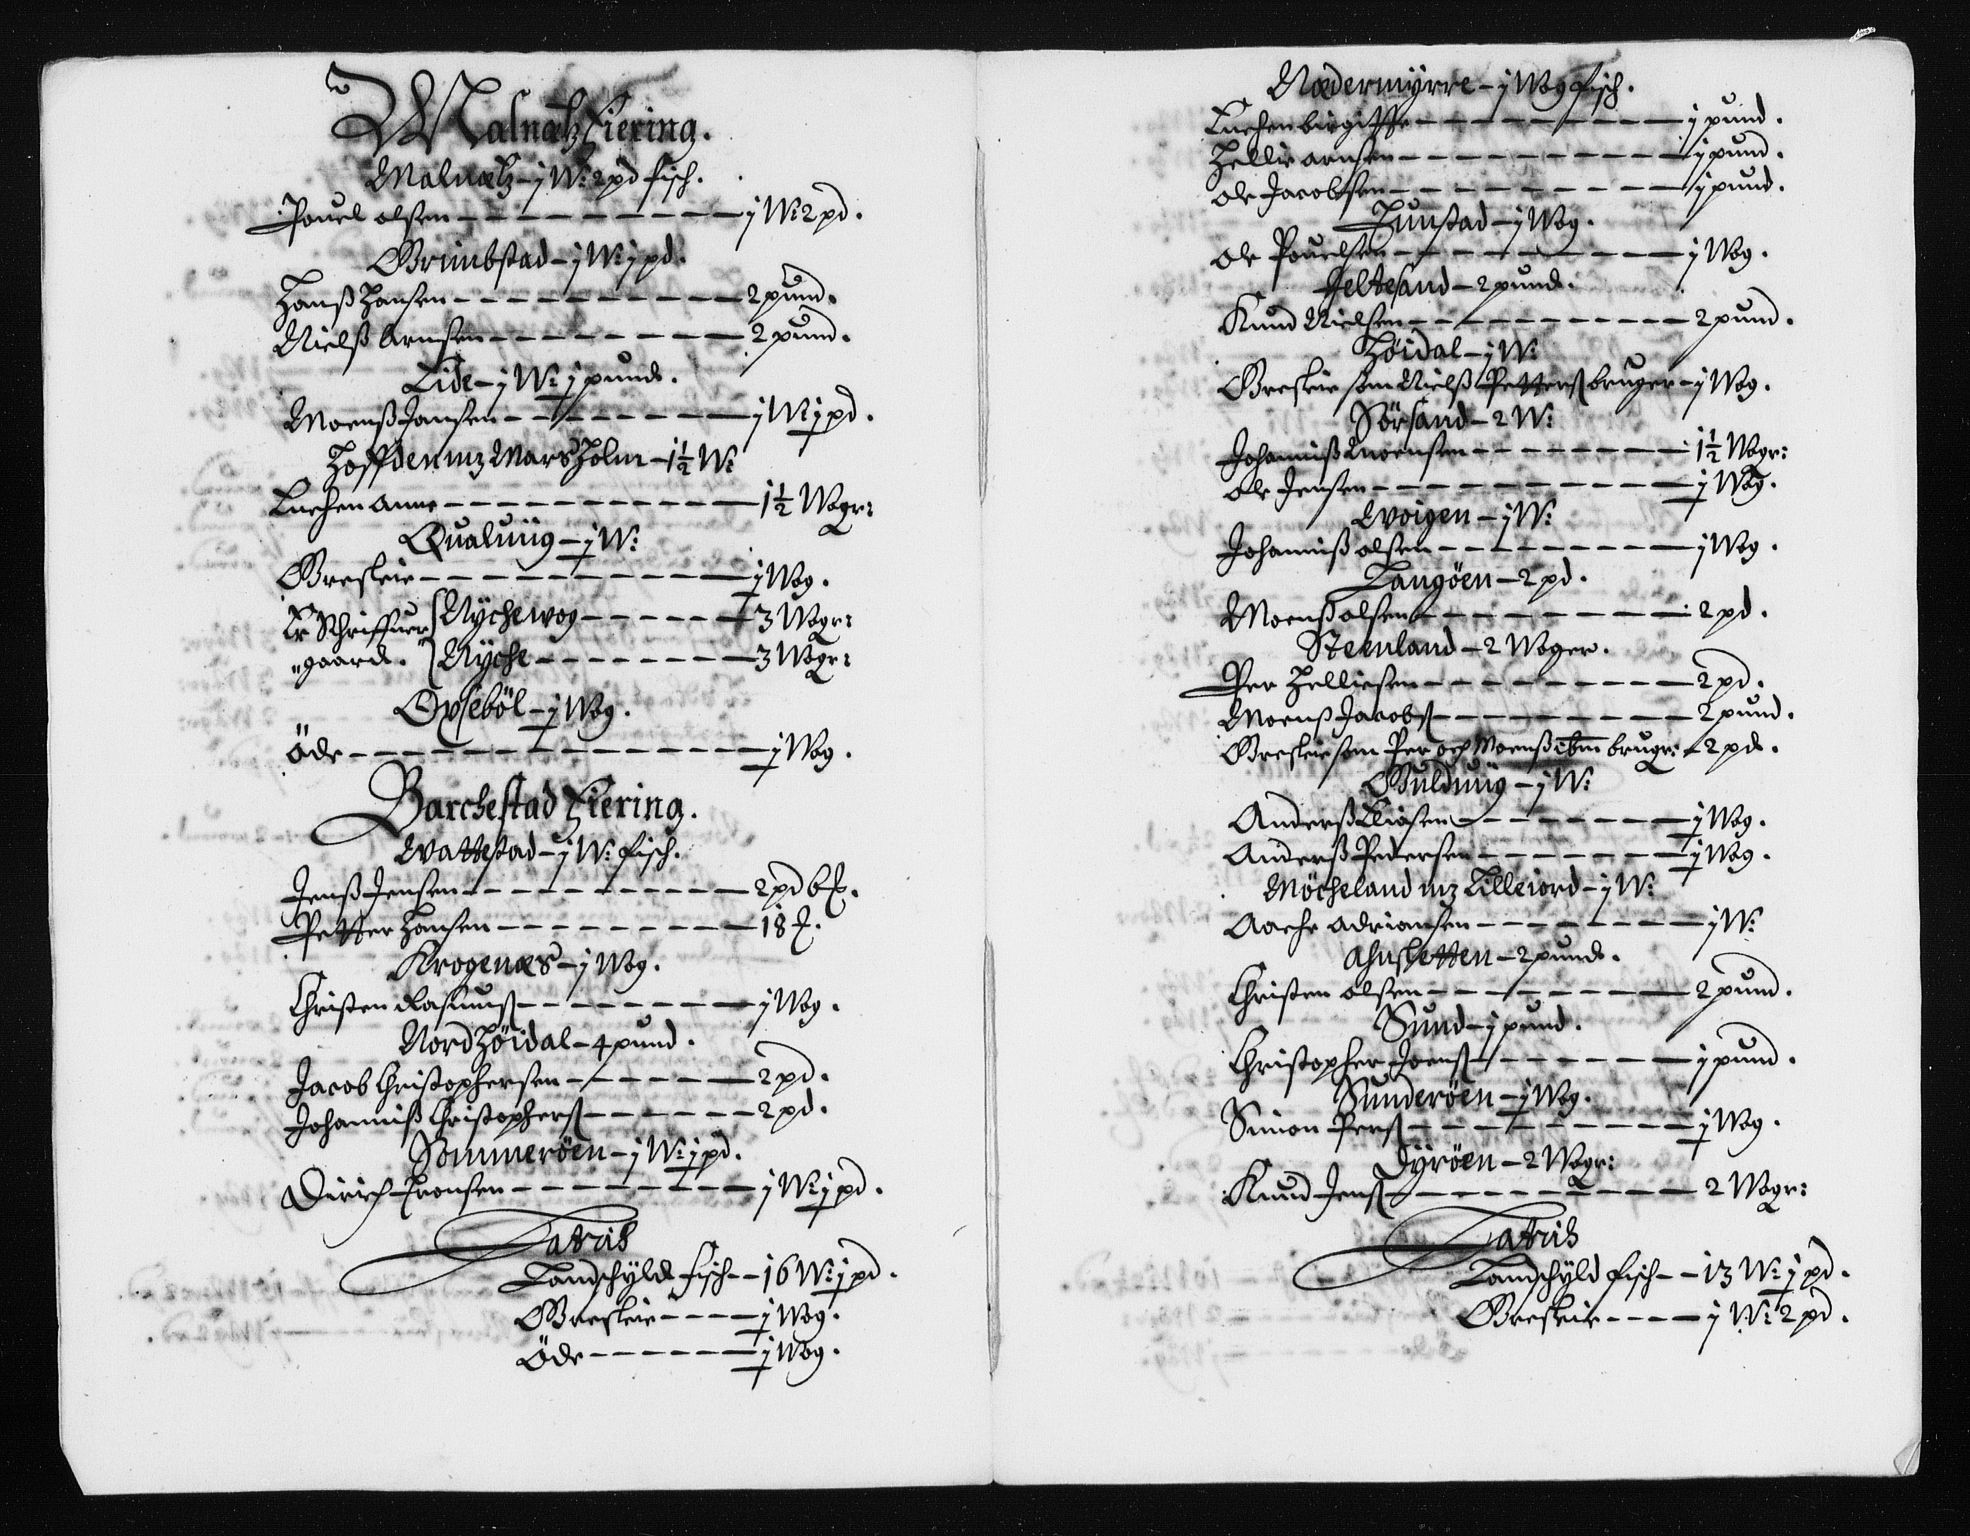 Malnætz Fiering.
Malnætz – j W: 2 pd fisch.
Pouel olsen – j W: 2 pd.
Grimbstad – j W: j pd.
Hanß Hansen – 2 pund.
Nielß Arnsen – 2 pund.
Lide – j W: j pund.
Moenß Jansen – j W: j pd.
Hoffden mz Mars Holm – 1½ W:
Enchen Anne – 1½ Wogr:
Qualuiig – j W:
Øreskie – j Wog.
Er Schriffuer { Nÿchewog – 3 Wogr:
„gaard. { Nÿche – 3 Wogr:
Oxseböl – j Wog.
Öde – j Wog.
Barchestad Fiering.
Wattestad – j W: fisch.
Jenß Jensen – 2 pd 6
Petter Hansen – 18
Krogenæs – j Wog.
Christen Rasmuss – j Wog.
Nord Höidal – 4 pund.
Jacob Christophersen – 2 pd.
Johanniß Christophers – 2 pd.
Sommeröen – j W: j pd.
Dirich Fransen – j W: j pd.
Lateris
Landschÿld fisch – 16 W: j pd.
Øreskie – j Wog.
Öde – j Wog.
Nedermÿrre – j Wog fisch.
Enchen birgitte – j pund.
Hellie arnsen – j pund.
ole Jacobsen – j pund.
Junstad – j Wog.
ole Pouelsen – j Wog.
Jeltesand – 2 pund.
Knud Nielsen – 2 pund.
Höidal – j W:
Øreskie som Nielß Petters bruger – j Wog.
Sörsand – 2 W:
Johanniß Moensen – 1½ Wogr:
ole Jensen – j Wog.
Woigen – j W:
Johanniß olsen – j Wog.
Langöen – 2 pd.
Moenß olsen – 2 pd.
Steenland – 2 Woger.
Per Helliesen – 2 pd.
Moenß Jacobs – 2 pund.
Øreskie som Per och Moenß ibm brugr: – 2 pd.
Gulduiig – j W:
Anderß Eliasen – j Wog.
Anderß Pedersen – j Wog.
Möcheland mz Lilleiord – j W:
Aache adriansen – j W:
Alsfletten – 2 pund.
Christen olsen – 2 pund.
Sund – j pund.
Christopher Joens – j pund.
Sunderöen – j Wog.
Simon Pers – j Wog.
Dÿröen – 2 Wogr:
Knud Jens – 2 Wogr:
Lateris
Landschÿld fisch – 13 W: j pd.
Øreskie – j W: 2 pd.